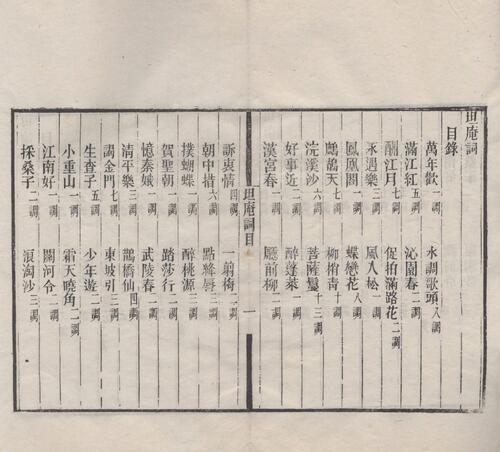 坦庵詞
目錄
萬年歡一調 水調歌頭八調
滿江紅五調 沁園春二調
酹江月七調 促拍滿路花二調
永遇樂三調 風入松一調
鳳凰閣一調 蝶戀花八調
鷓鴣天七調 柳梢青十調
浣溪沙六調 菩薩蠻十三調
好事近二調 醉蓬萊一調
漢宮春二調 廳前柳二調
坦庵詞目 一
訴衷情四調 一翦梅二調
朝中措六調 點絳唇三調
撲蝴蝶一調 醉桃源三調
賀聖朝一調 踏莎行二調
憶秦娥二調 武陵春二調
清平樂三調 鵲橋仙四調
謁金門七調 東坡引三調
生查子五調 少年遊二調
小重山一調 霜天曉角二調
江南好一調 關河令二調
採桑子二調 浪淘沙三調